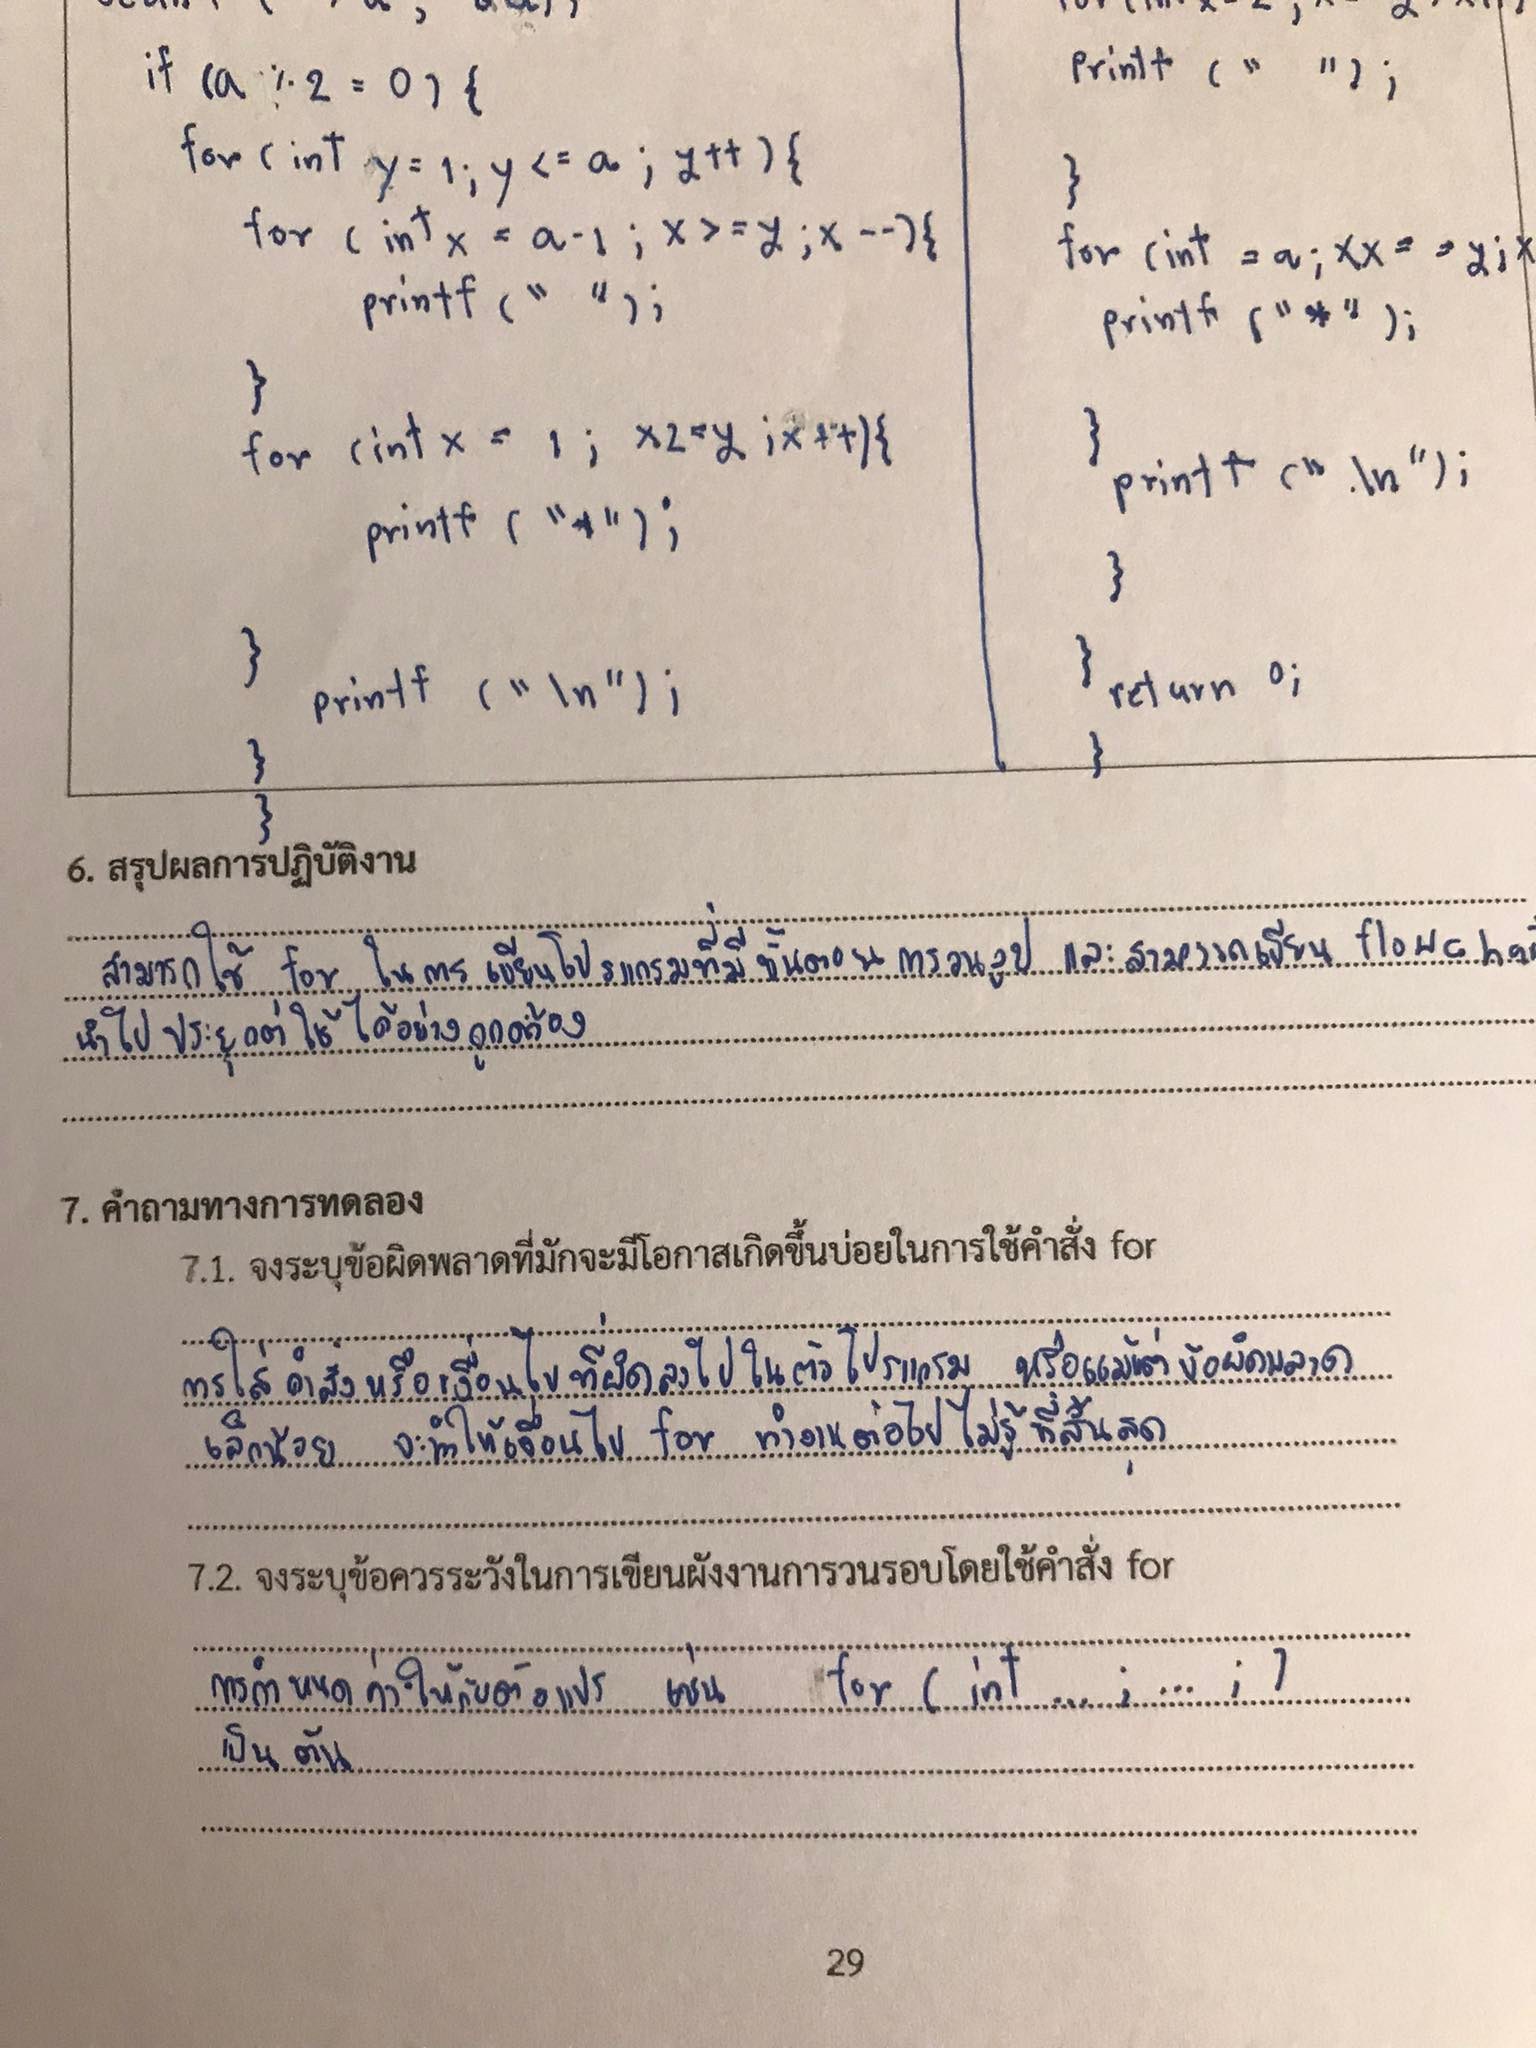 if (a % 2 = 0) {
for (int y = 1; y <= a ; y++) {
for (int x = a-1 ; x >= y ; x --) {
printf (" ");
}
for (int x = 1 ; x2=y ; x++) {
printf ("*");
}
printf ("\n");
}
}
printf (" ");
}
for (int = a ; xx = = y ; x
printf ("*");
}
printf ("\n");
}
}
return 0;
}
6. สรุปผลการปฏิบัติงาน
สามารถใช้ for ในการเขียนโปรแกรมที่มีขั้นตอนการวนลูป และสามารถเขียน
นำไปประยุกต์ใช้ได้อย่างถูกต้อง
7. คำถามทางการทดลอง
7.1. จงระบุข้อผิดพลาดที่มักจะมีโอกาสเกิดขึ้นบ่อยในการใช้คำสั่ง for
การใส่คำสั่งหรือเงื่อนไขที่ผิดลงไปในตัวโปรแกรม หรือแม้แต่ข้อผิดพลาด
เล็กน้อย จะทำให้เงื่อนไข for ทำงานต่อไปไม่รู้ที่สิ้นสุด
7.2. จงระบุข้อควรระวังในการเขียนผังงานการวนรอบโดยใช้คำสั่ง for
การกำหนดค่าให้กับตัวแปร เช่น for ( int ... ; ... ; )
เป็นต้น
29